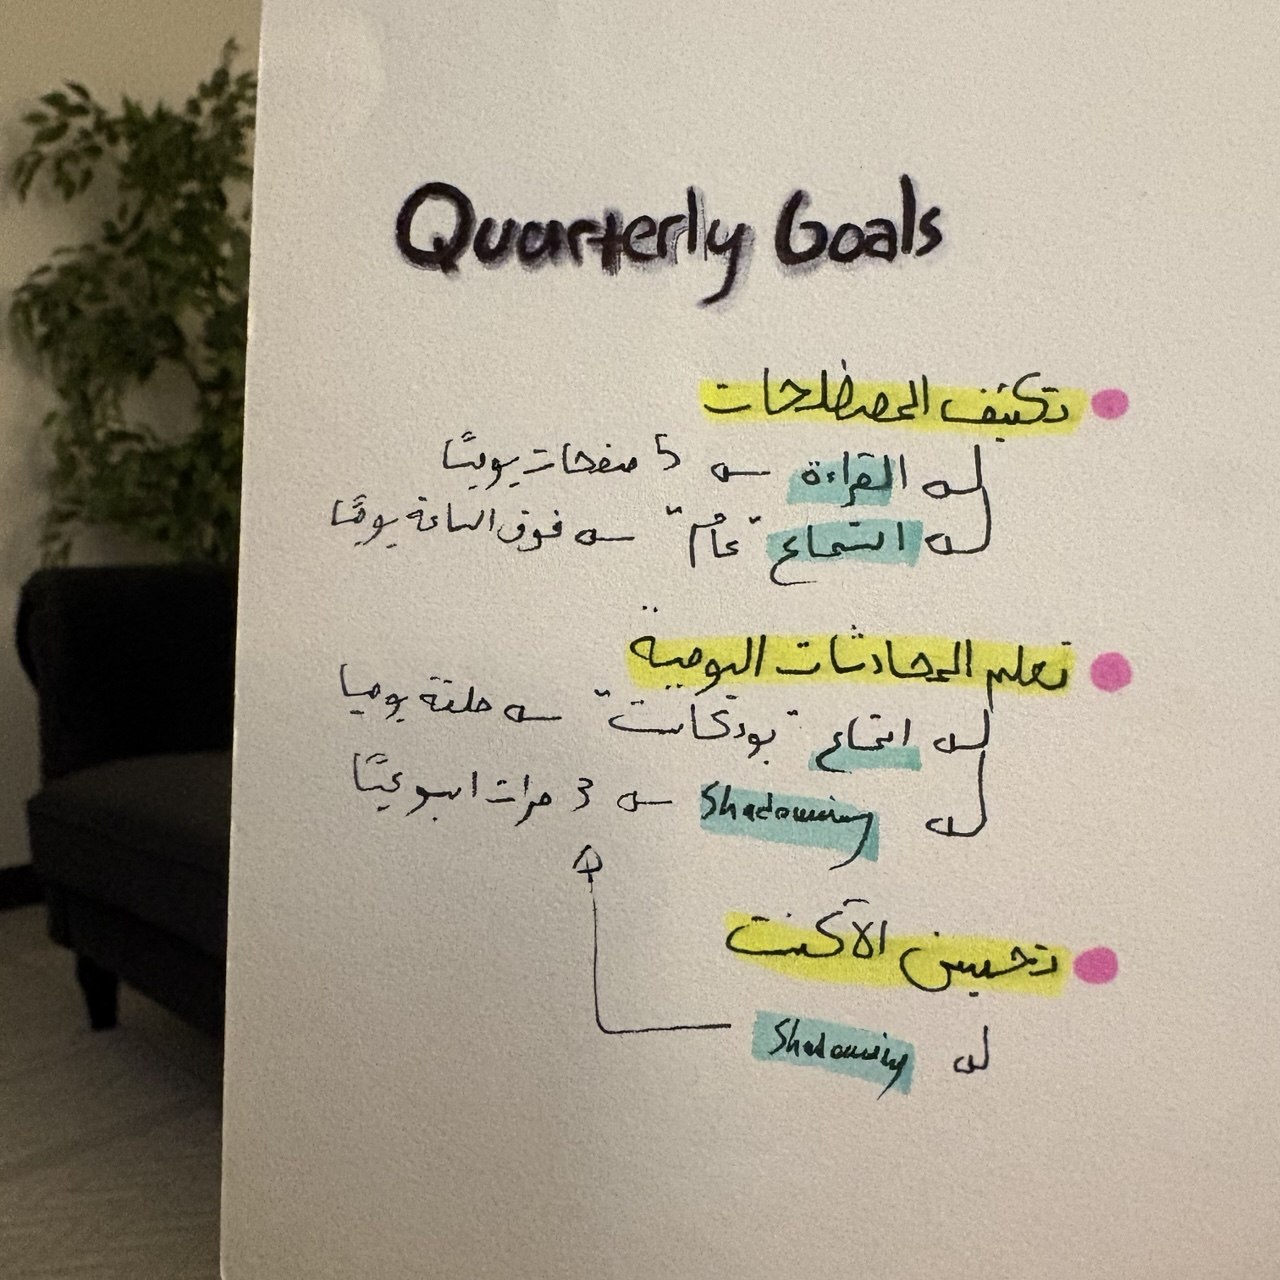 Quarterly Goals
تكثيف المصطلحات
القراءة ← 5 صفحات يوميًا
استماع "عام" ← فوق الساعة يوميًا
تعلم المحادثات اليومية
استماع "بودكاست" ← حلقة يوميا
Shadowing ← 3 مرات اسبوعيًا
تحسين الآكسنت
Shadowing